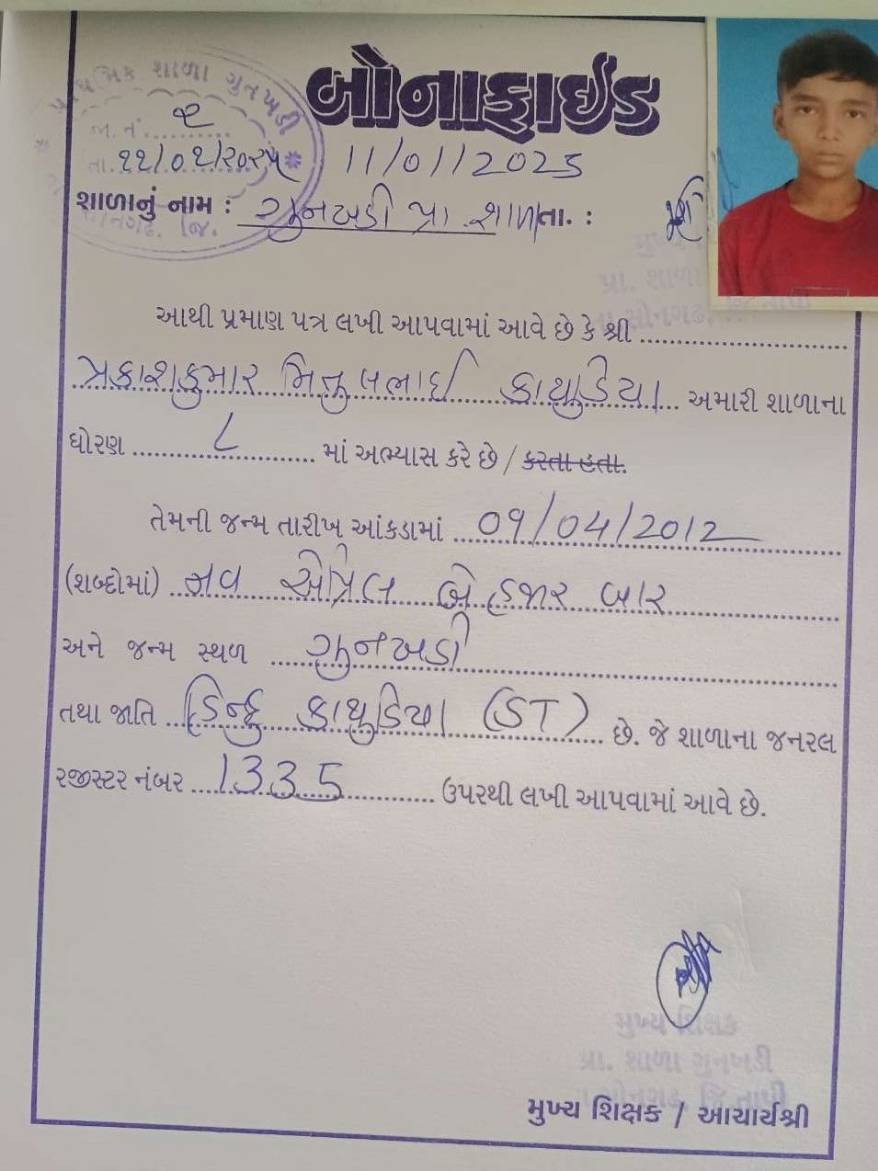 બોનાફાઈડ
પ્રાથમિક શાળા ગુનખડી
જા. નં. ૨
તા. ૧૧/૦૧/૨૦૨૫ 11/01/2025
શાળાનું નામ : ગુનખડી પ્રા. શાળા તા. :
આથી પ્રમાણ પત્ર લખી આપવામાં આવે છે કે શ્રી
પ્રકાશકુમાર મિતુલભાઈ કાથુડિયા અમારી શાળાના
ધોરણ ૮ માં અભ્યાસ કરે છે / કરતા હતા.
તેમની જન્મ તારીખ આંકડામાં 09/04/2012
(શબ્દોમાં) નવ એપ્રિલ બે હજાર બાર
અને જન્મ સ્થળ ગુનખડી
તથા જાતિ હિન્દુ કાથુડિયા (ST) છે. જે શાળાના જનરલ
રજીસ્ટર નંબર 1335 ઉપરથી લખી આપવામાં આવે છે.
મુખ્ય શિક્ષક
પ્રા. શાળા ગુનખડી
તા સોનગઢ, જિ.તાપી
મુખ્ય શિક્ષક / આચાર્યશ્રી